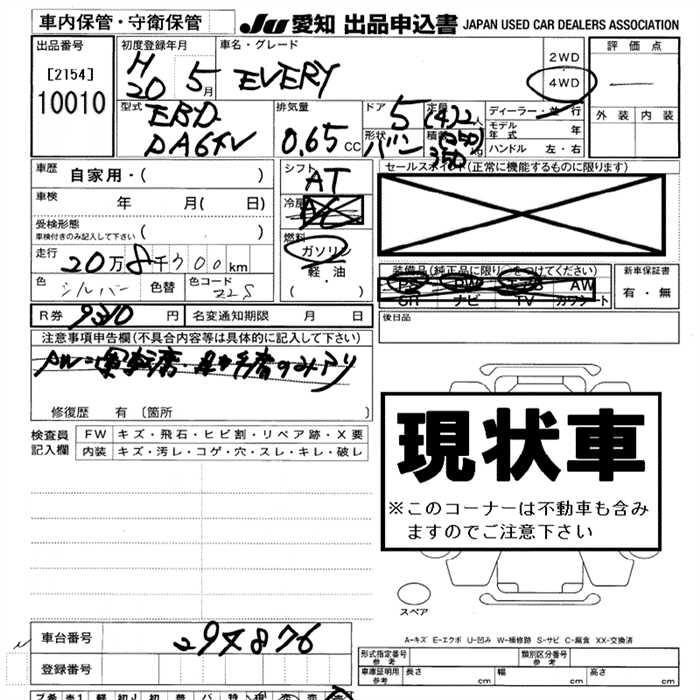 車内保管・守衛保管
JU 愛知 出品申込書 JAPAN USED CAR DEALERS ASSOCIATION
出品番号
[2154]
10010
初度登録年月
H
20 5月
車名・グレード
EVERY
2WD
・
4WD
評価点
外装 内装
型式
EBD
DA64V
排気量
0.65 CC
ドア
5
形状
バン
定員
(4)2人
積載
(250)
350
ディーラー・並行
モデル年式 年
ハンドル 左・右
車歴
自家用・( )
車検
年 月( 日)
受検形態
車検付きのみ記入して下さい ( )
走行
20万8千700km
色
シルバー
色替
色コード
Z2S
シフト
AT
冷房
AC
燃料
ガソリン
軽油
( ・ )
セールスポイント(正常に機能するものに限ります)
装備品(純正品に限り○をつけてください)
PS PW エアB AW
SR ナビ TV カワシート
新車保証書
有・無
後日品
R券 9310円
名変通知期限 月 日
注意事項申告欄(不具合内容等は具体的に記入して下さい)
修復歴 有 〔箇所 〕
検査員記入欄
FW キズ・飛石・ヒビ割・リペア跡・X要
内装 キズ・汚レ・コゲ・穴・スレ・キレ・破レ
現状車
※このコーナーは不動車も含み
ますのでご注意下さい
スペア
A-キズ E-エクボ U-凹み W-補修跡 S-サビ C-腐食 XX-交換済
車台番号
294876
登録番号
形式指定番号
参考
類別区分番号
参考
車庫証明用
参考
長さ cm 幅 cm 高さ cm